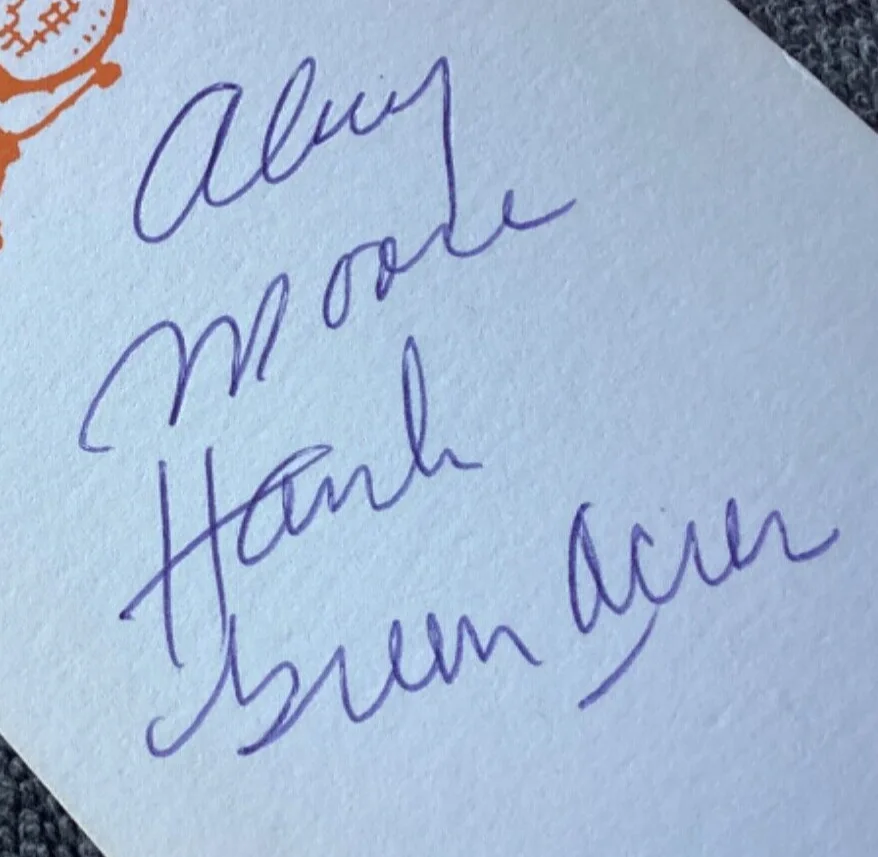 Alvy
Moore
Hank
Green Acres